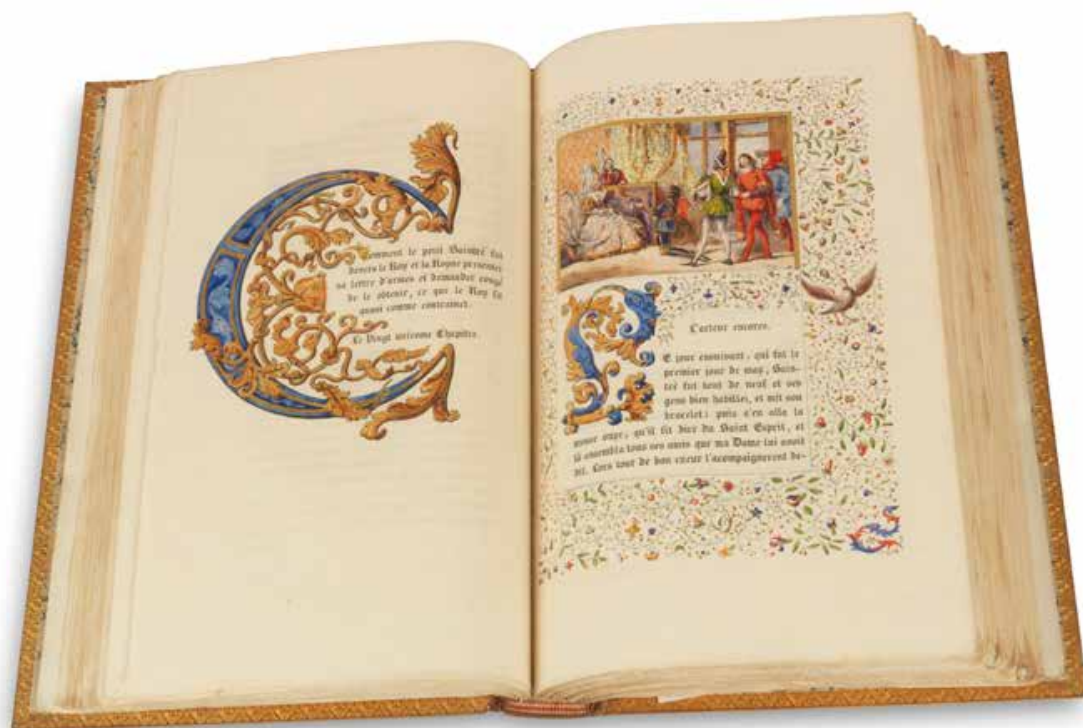 Comment le petit Saintré fut
devers le Roy et la Royne presenter
sa lettre d'armes et demander congé
de le obtenir, ce que le Roy fit
quasi comme contrainct.
Le Vingt uniesme Chapitre.
L'acteur encores.
LE jour ensuivant, qui fut le
premier jour de may, Sain-
tré fut tout de neuf et ses
gens bien habillez, et mit son
bracelet; puis s'en alla la
messe ouyr, qu'il fit dire du Saint Esprit, et
là assembla tous ses amis que ma Dame lui avoit
dit. Lors tout de bon cueur l'acompaignerent de-